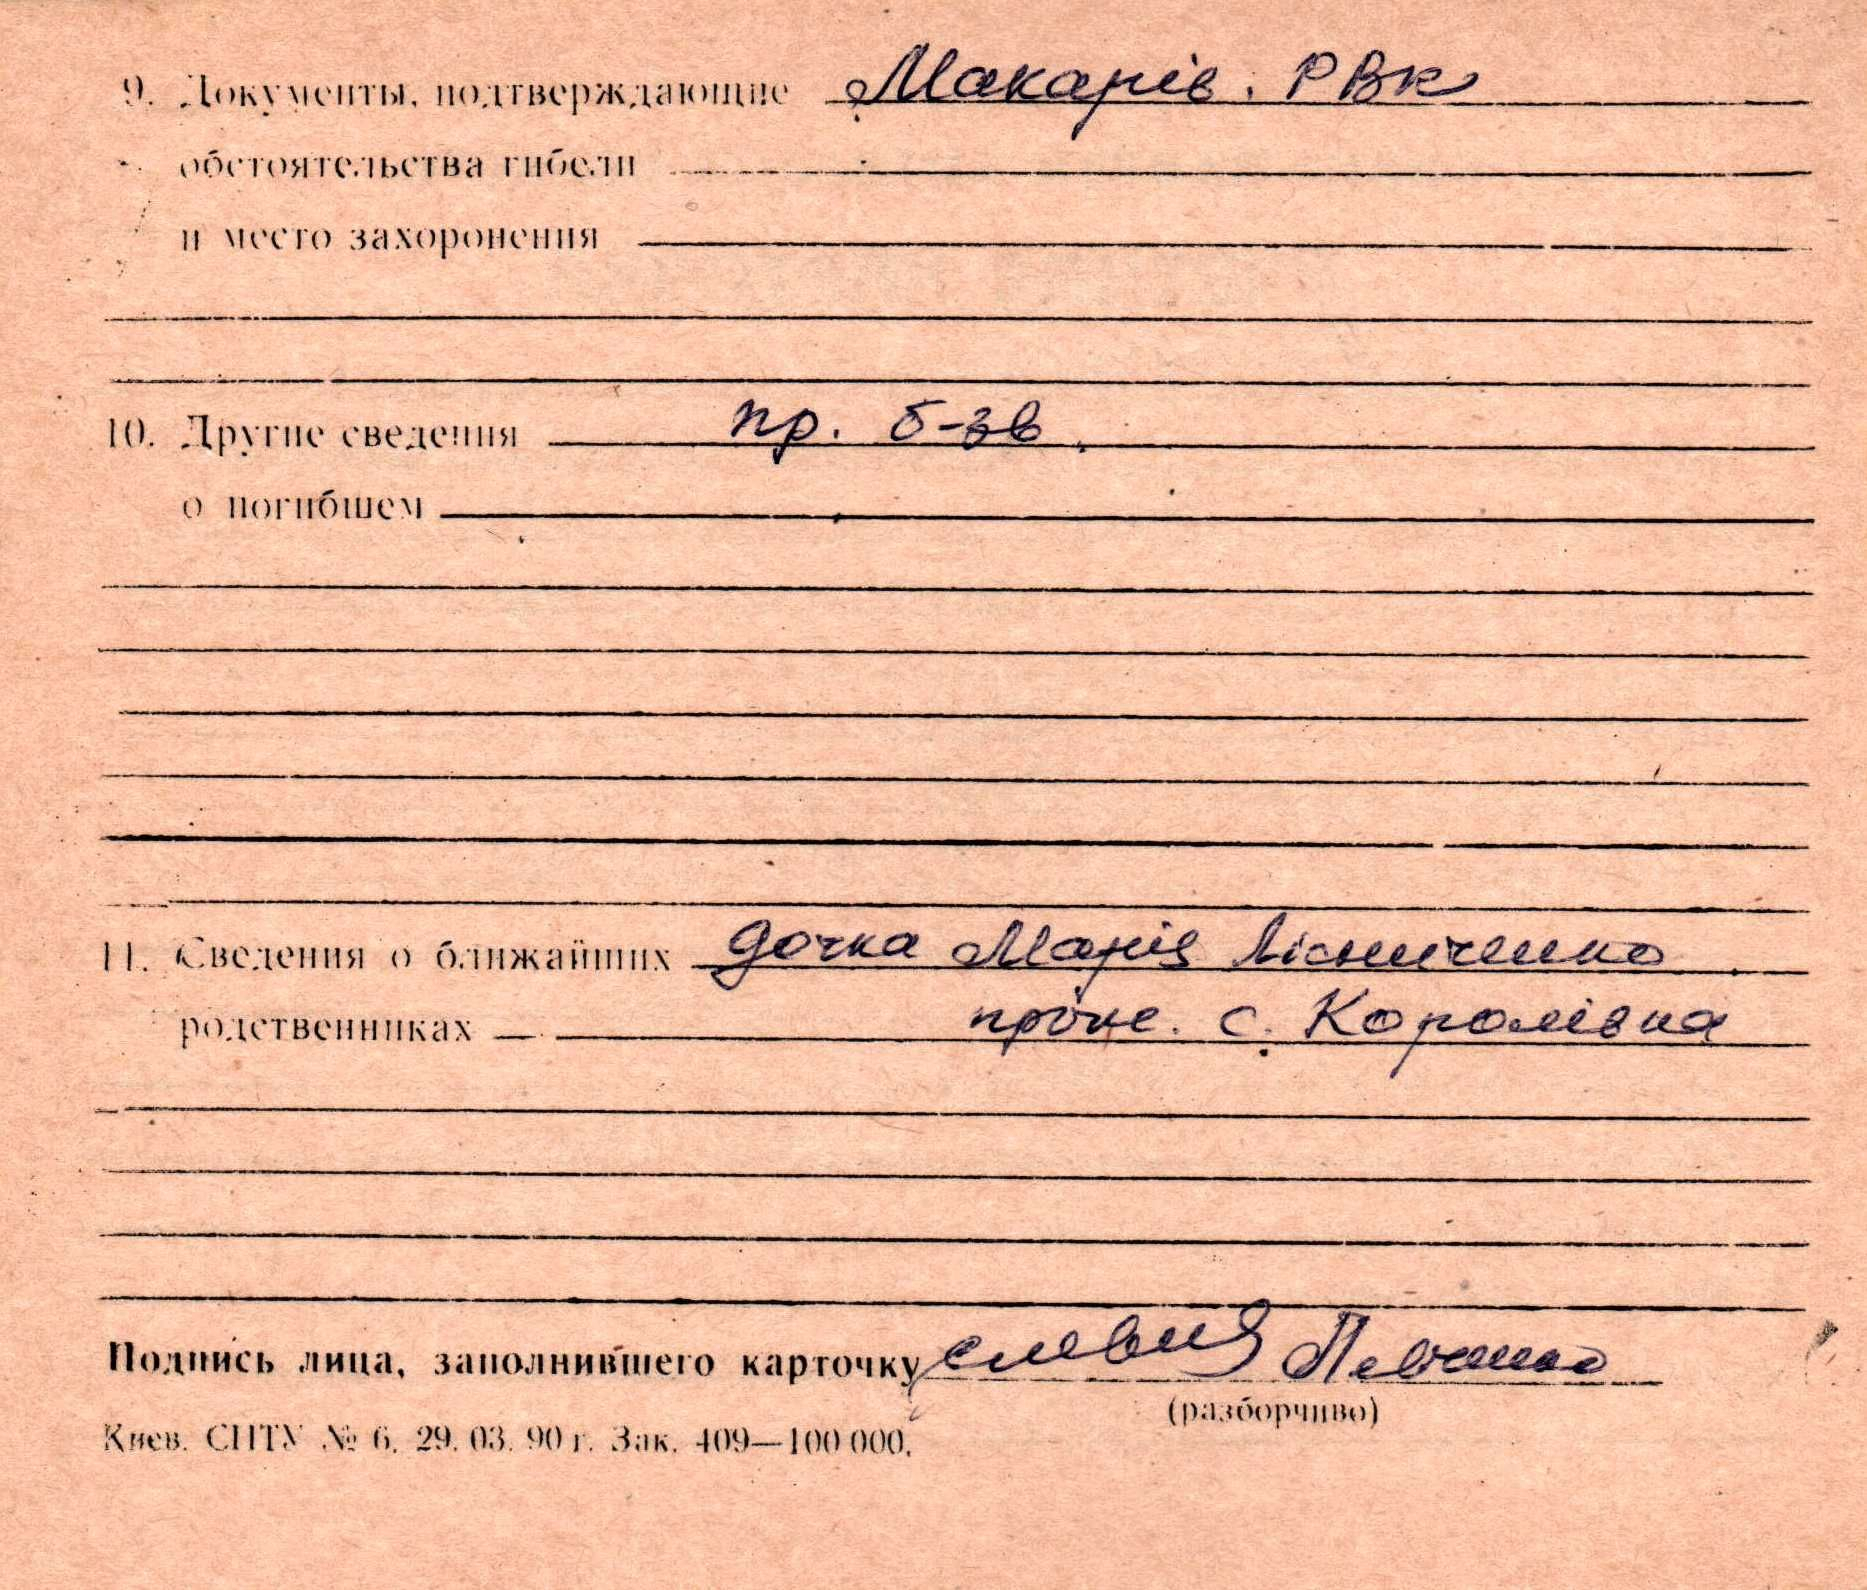 9. Документы, подтверждающие Макарів. РВК
обстоятельства гибели
и место захоронения
10. Другие сведения пр. б-зв.
о погибшем
11. Сведения о ближайших дочка Марія Лісниченко
родственниках прож. с. Королівка
Подпись лица, заполнившего карточку
(разборчиво)
Киев. СПТУ № 6. 29. 03. 90 г. Зак. 409—100 000.